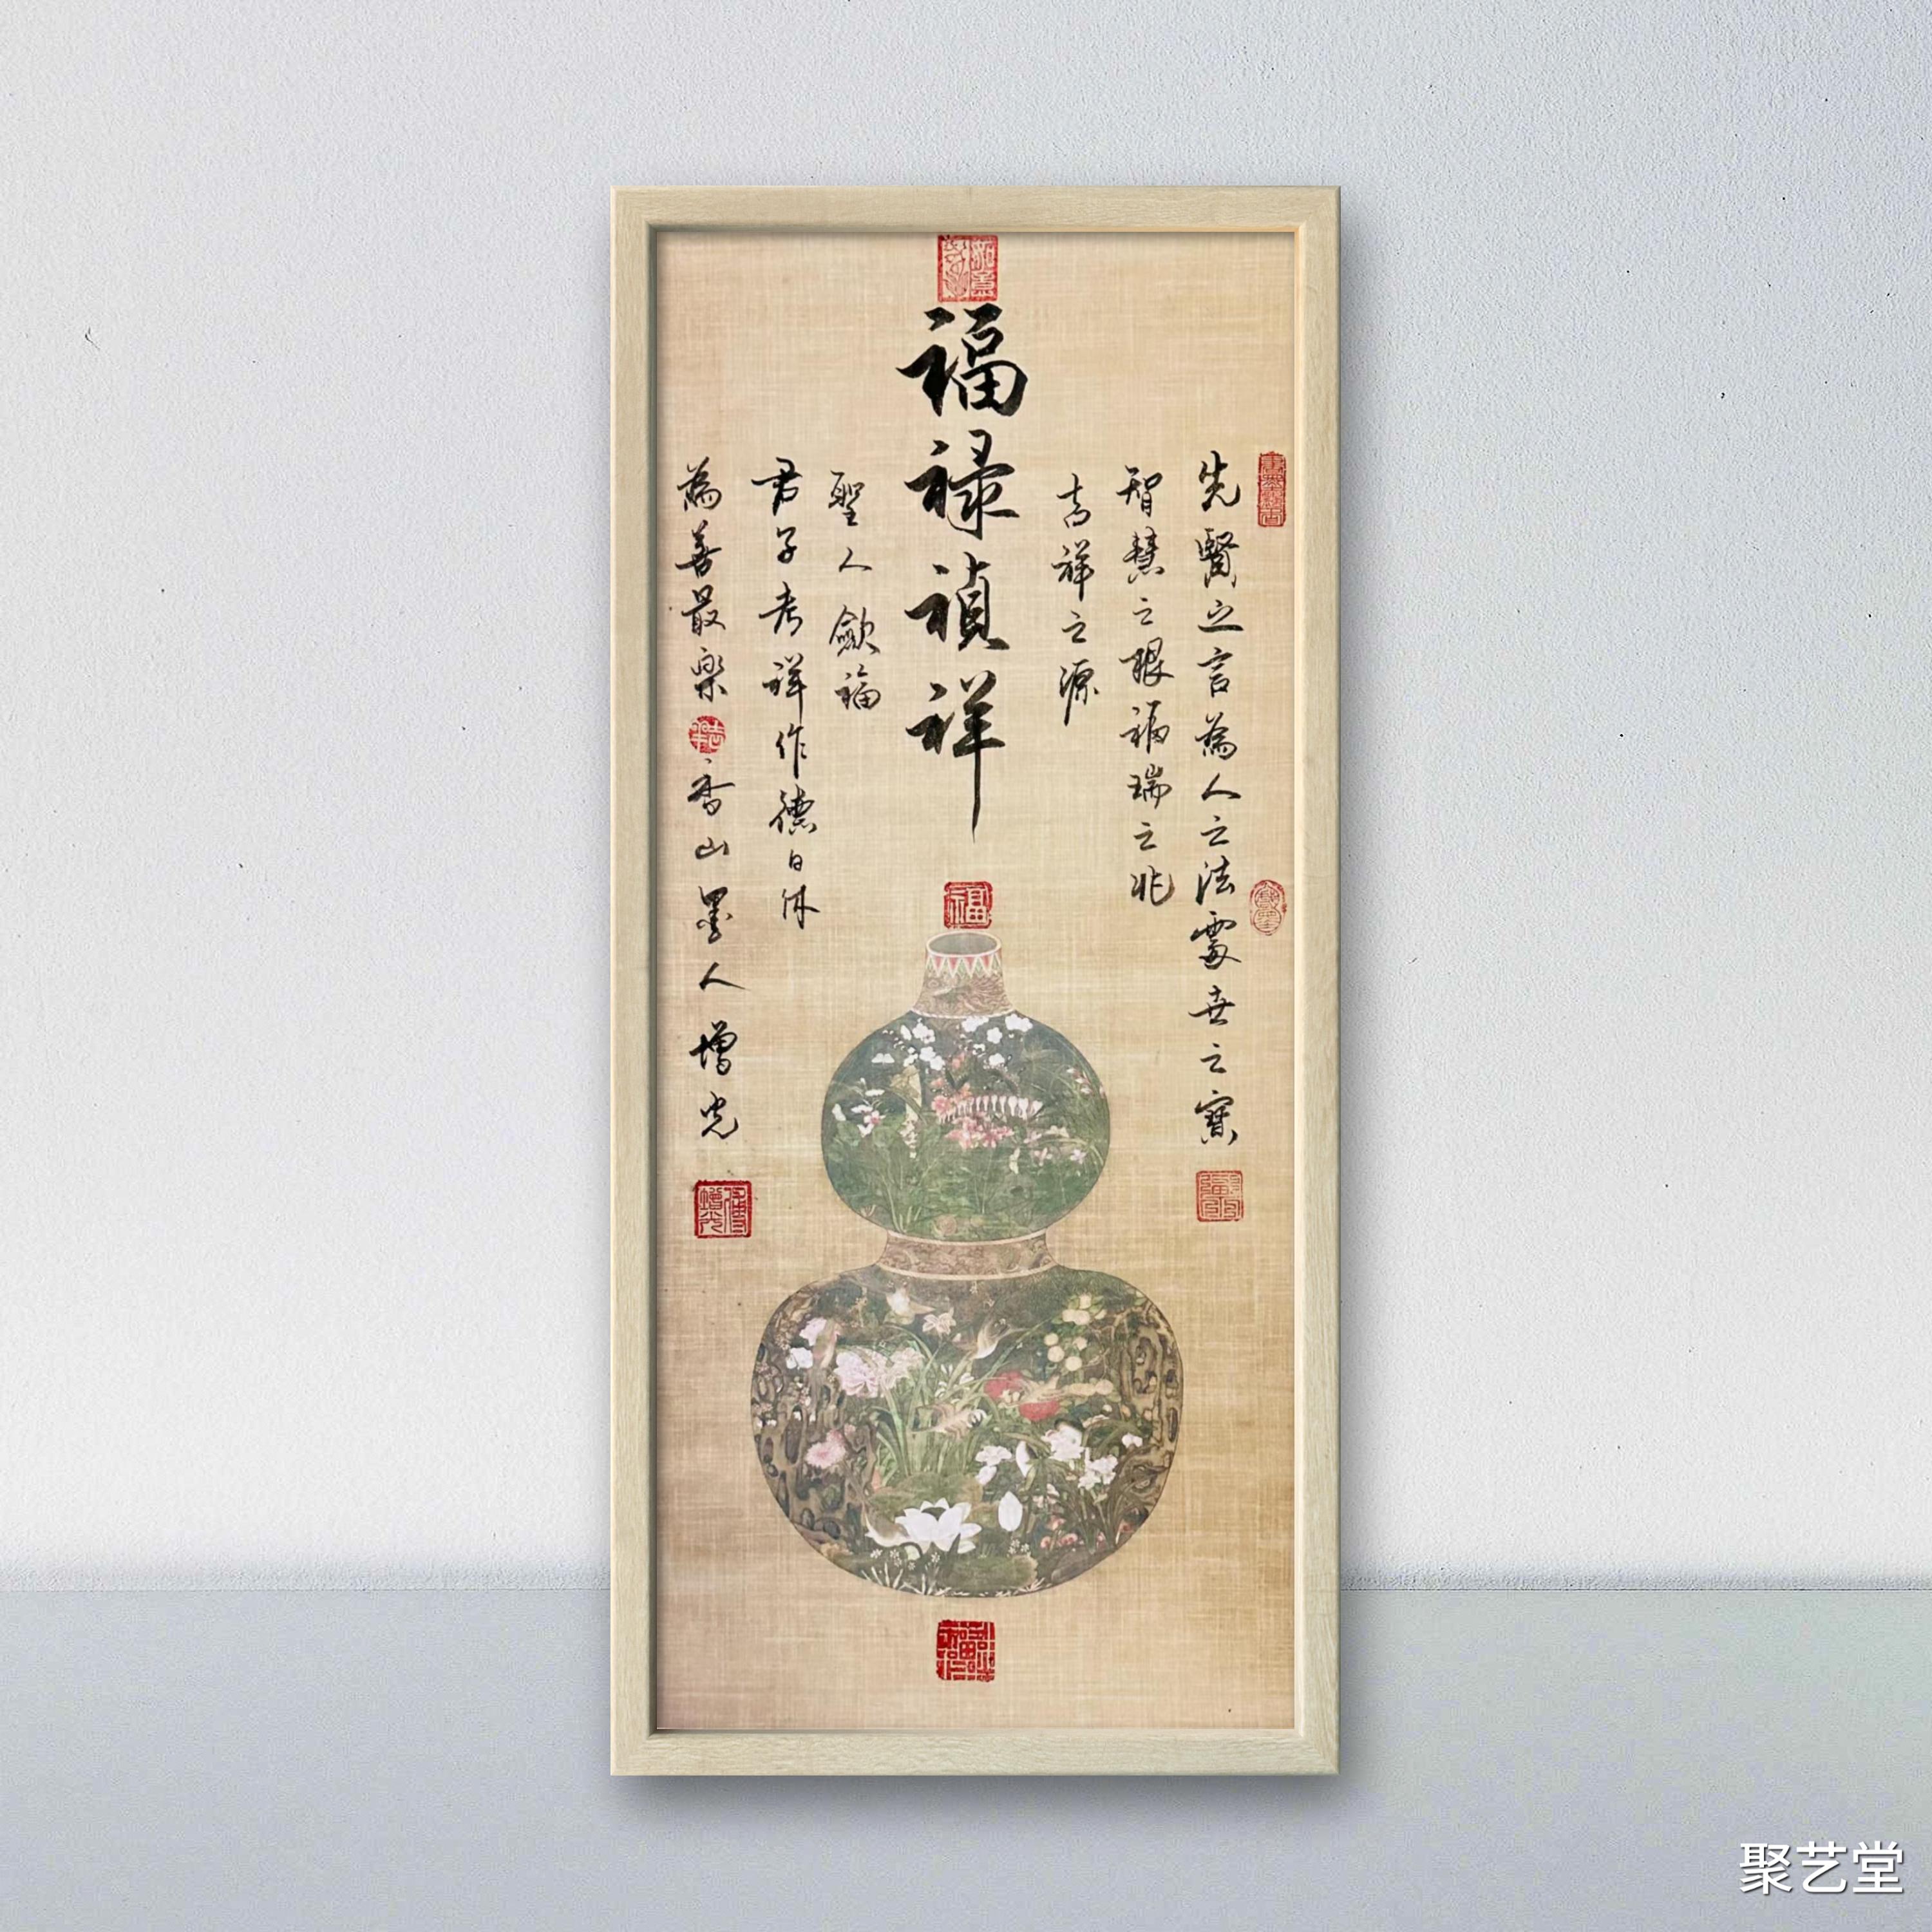 先賢之言為人之法處世之寶
智慧之眼福瑞之兆
吉祥之源
福禄禎祥
福
聖人歛福
君子考祥作德日休
為善最楽
香山墨人增光
聚艺堂